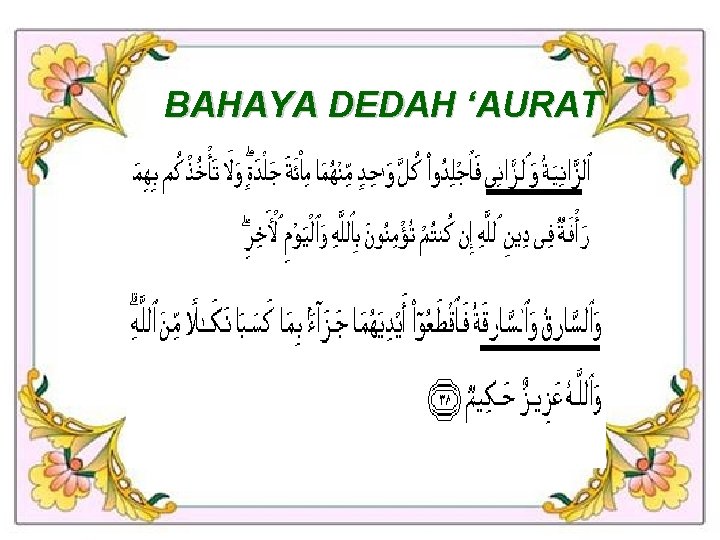 BAHAYA DEDAH ‘AURAT
ٱلزَّانِيَةُ وَٱلزَّانِى فَٱجْلِدُوا۟ كُلَّ وَٰحِدٍ مِّنْهُمَا مِا۟ئَةَ جَلْدَةٍ ۖ وَلَا تَأْخُذْكُم بِهِمَا
رَأْفَةٌ فِى دِينِ ٱللَّهِ إِن كُنتُمْ تُؤْمِنُونَ بِٱللَّهِ وَٱلْيَوْمِ ٱلْءَاخِرِ ۖ
وَٱلسَّارِقُ وَٱلسَّارِقَةُ فَٱقْطَعُوٓا۟ أَيْدِيَهُمَا جَزَآءًۢ بِمَا كَسَبَا نَكَـٰلًا مِّنَ ٱللَّهِ ۗ
وَٱللَّهُ عَزِيزٌ حَكِيمٌ ﴿٣٨﴾